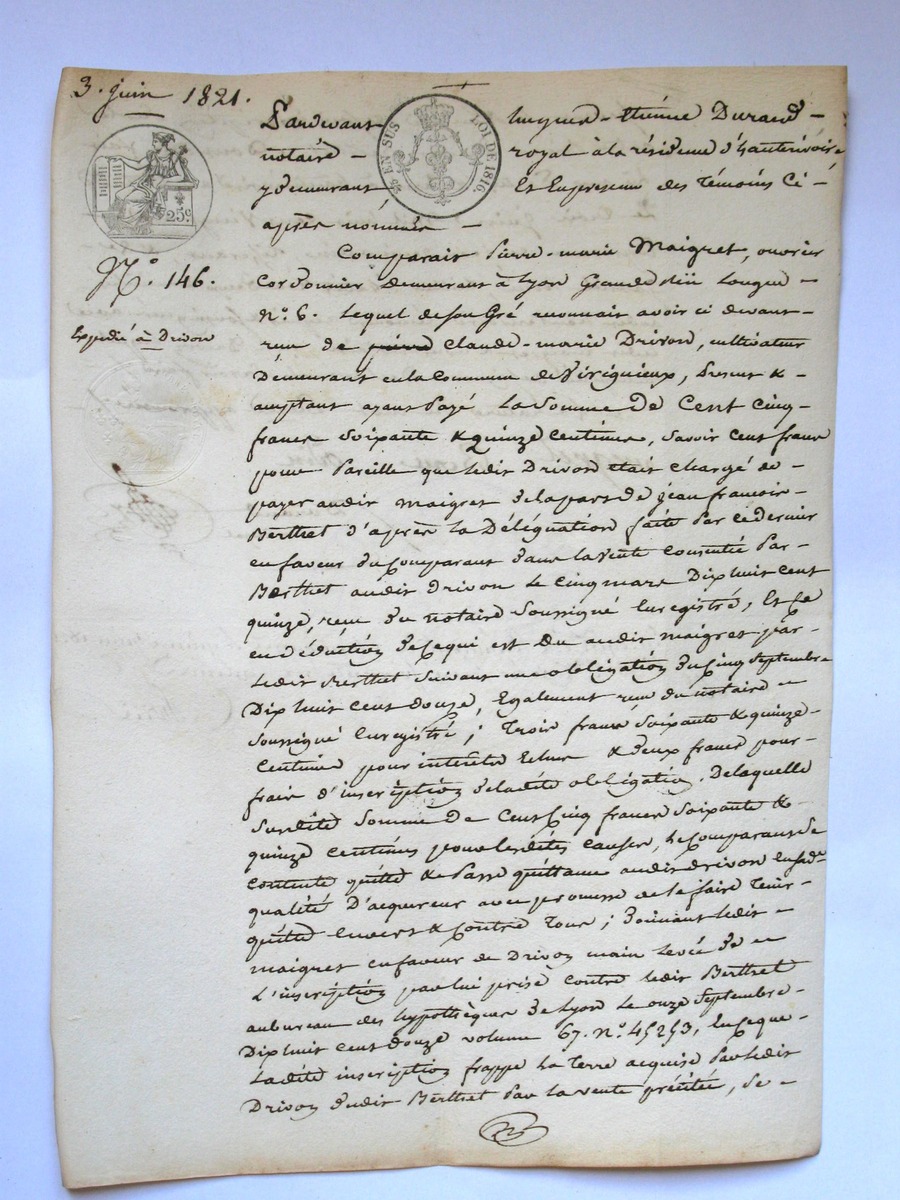 3. juin 1821.
Pardevant hugues-Etienne Durand -
notaire - royal à la résidence d'hauterivoire
y demeurant Et En presence des Témoins Ci-
après nommés -
25c.
& EN SUS LOI DE 1816.
N.° 146.
Expédié à Drivon
Comparait Pierre-marie Maigret, ouvrier
Cordonnier demeurant à Lyon Grande Rue Longue -
N.° 6. Lequel de son Gré reconnait avoir ci devant -
reçu de pierre Claude-marie Drivon, cultivateur
Demeurant en la Commune de Viriquieux, Present &
acceptant ayant Payé La Somme De Cent Cinq
francs Soixante & Quinze Centimes, Savoir Cent francs
pour Pareille que ledit Drivon était chargé de -
payer audit maigret de la part de jean francois -
Berthet d'après La Délégation faite Par ce dernier
en faveur du Comparant dans la Vente Consentie Par -
Berthet audit Drivon le Cinq mars Dix huit cent
quinze, reçue du notaire Soussigné Enregistrée, Et Ce
en déduction de Ce qui est Du audit maigret par -
Ledit Berthet Suivant une obligation du Cinq Septembre
Dix huit Cent Douze, Egalement reçue du notaire -
Soussigné Enregistrée; Trois francs Soixante & quinze -
Centimes pour interêts Echus & deux francs pour -
frais d'inscription de ladite obligation. De laquelle
Susdite Somme De Cent Cinq francs Soixante &
quinze Centimes pour les dites Causes, Le Comparant Se
Contente quitte & Passe quittance audit Drivon En sad.te
qualité D'acquereur avec promesse de le faire Tenir -
quitte Envers & Contre Tous; Donnant Ledit -
maigret en faveur de Drivon main Levée De -
L'inscription par lui prise Contre ledit Berthet
au bureau des hypothèques de Lyon Le onze Septembre -
Dix huit Cent Douze volume 67. N.° 45253, En Ce que -
Ladite inscription frappe La Terre acquise Par Ledit
Drivon dudit Berthet Par La vente précitée, Se -